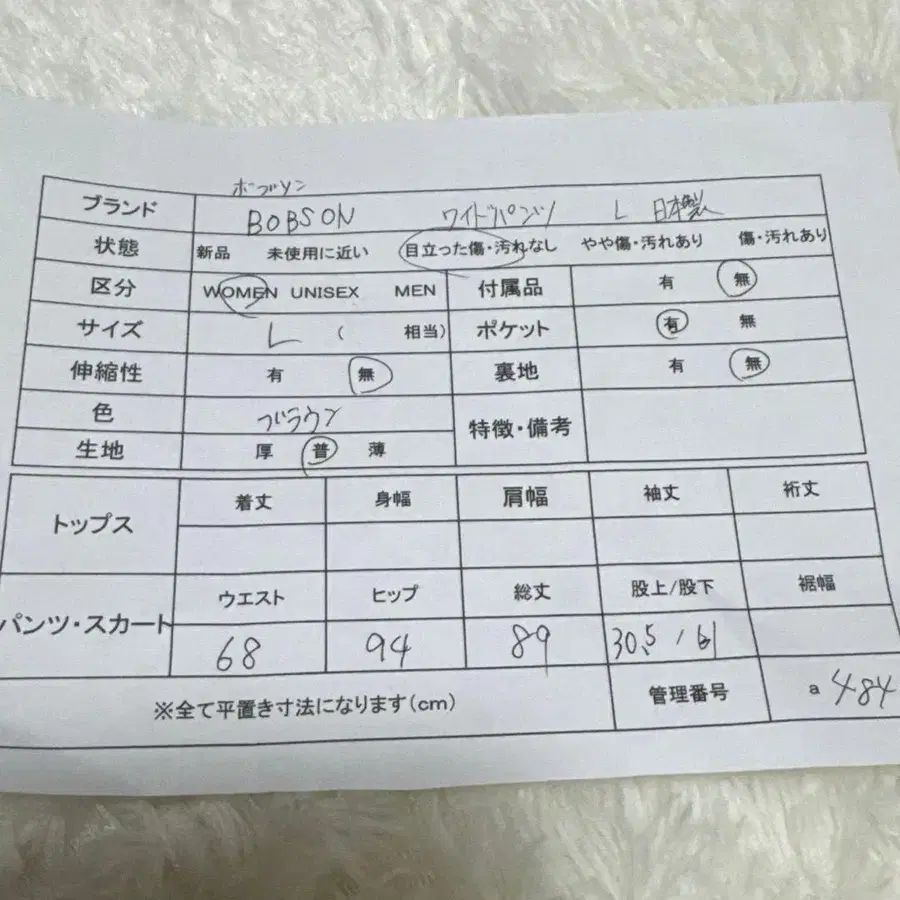 ボブソン
ブランド BOBSON ワイドパンツ L 日本製
状態 新品 未使用に近い 目立った傷・汚れなし やや傷・汚れあり 傷・汚れあり
区分 WOMEN UNISEX MEN 付属品 有 無
サイズ L ( 相当) ポケット 有 無
伸縮性 有 無 裏地 有 無
色 ブラウン 特徴・備考
生地 厚 普 薄
トップス 着丈 身幅 肩幅 袖丈 裄丈
パンツ・スカート ウエスト ヒップ 総丈 股上/股下 裾幅
68 94 89 30.5 / 61
※全て平置き寸法になります(cm) 管理番号 a 484